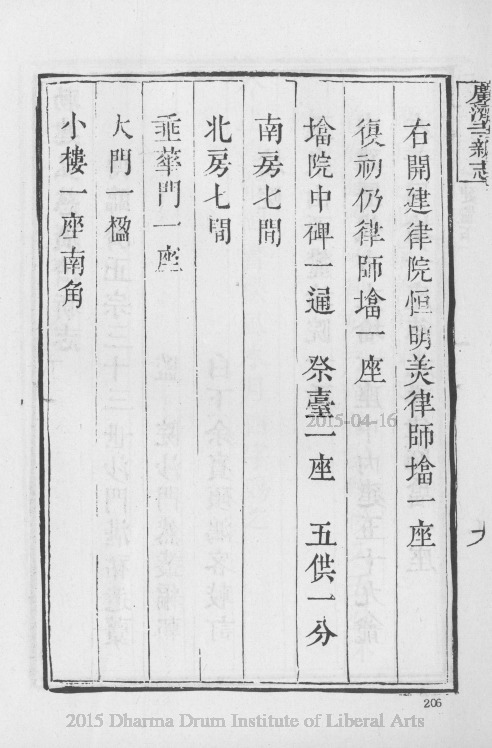 廣濟寺新志
右開建律院恒明美律師墖一座
復初仍律師墖一座
墖院中碑一通 祭臺一座 五供一分
南房七間
北房七間
垂華門一座
大門一楹
小樓一座南角
2015-04-16
206
2015 Dharma Drum Institute of Liberal Arts